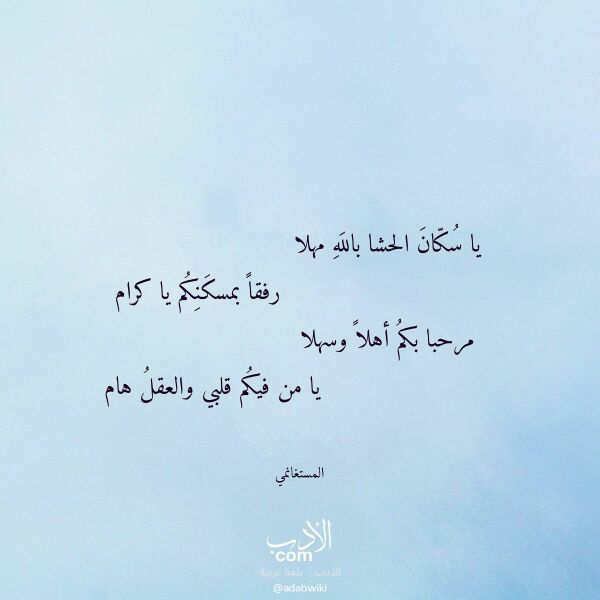 يا سُكّانَ الحشا باللَهِ مهلا
رفقاً بمسكَنِكُم يا كرام
مرحبا بكمُ أهلاً وسهلا
يا من فيكُم قلبي والعقلُ هام
المستغانمي
الأدب
com
الأدب .. بلغة عربية
@adabwiki